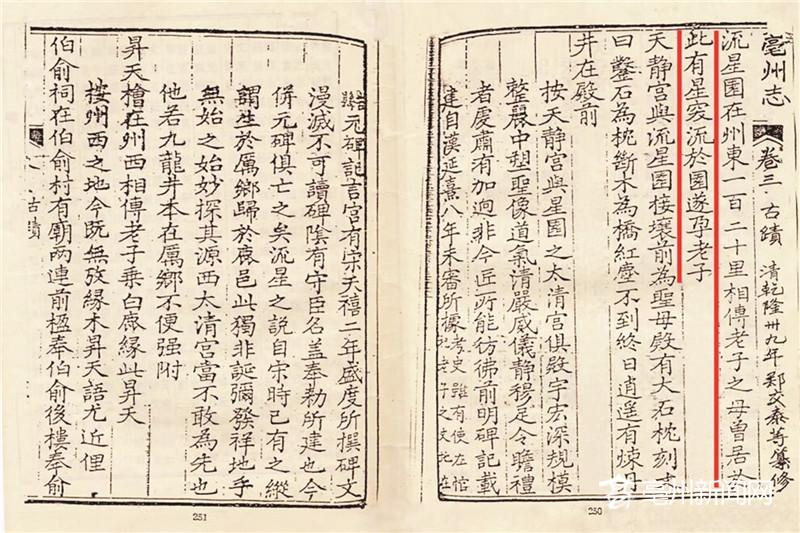 亳州志
卷三 古蹟 清乾隆卅九年 郑交泰等纂修
流星園在州東一百二十里相傳老子之母曾居於
此有星突流於園遂孕老子
天靜宮與流星園接壤前為聖母殿有大石枕刻
曰鑿石為枕斷木為橋紅塵不到終日逍遥有煉丹
井在殿前
按天靜宮與星園之太清宮俱殿宇宏深規模
整嚴中塑聖像道氣清嚴威儀靜穆足令瞻禮
者慶肅有加迥非今匠所能彷彿前明碑記載
建自漢延熹八年未審所據考史雖有使左悺
250
元碑記言宮有宋天禧二年盛度所撰碑文
漫滅不可讀碑陰有守臣名盖奉勅所建也今
併元碑俱亡之矣流星之說自宋時已有之縱
謂生於厲鄉歸於鹿邑此獨非誕彌發祥地乎
無始之始妙探其源西太清宮當不敢為先也
他若九龍井本在厲鄉不便强附
昇天檜在州西相傳老子乘白鹿緣此昇天
按州西之地今既無攷緣木昇天語尤近俚
伯俞祠在伯俞村有廟两連前楹奉伯俞後樓奉俞
古蹟
251
亳州新闻网